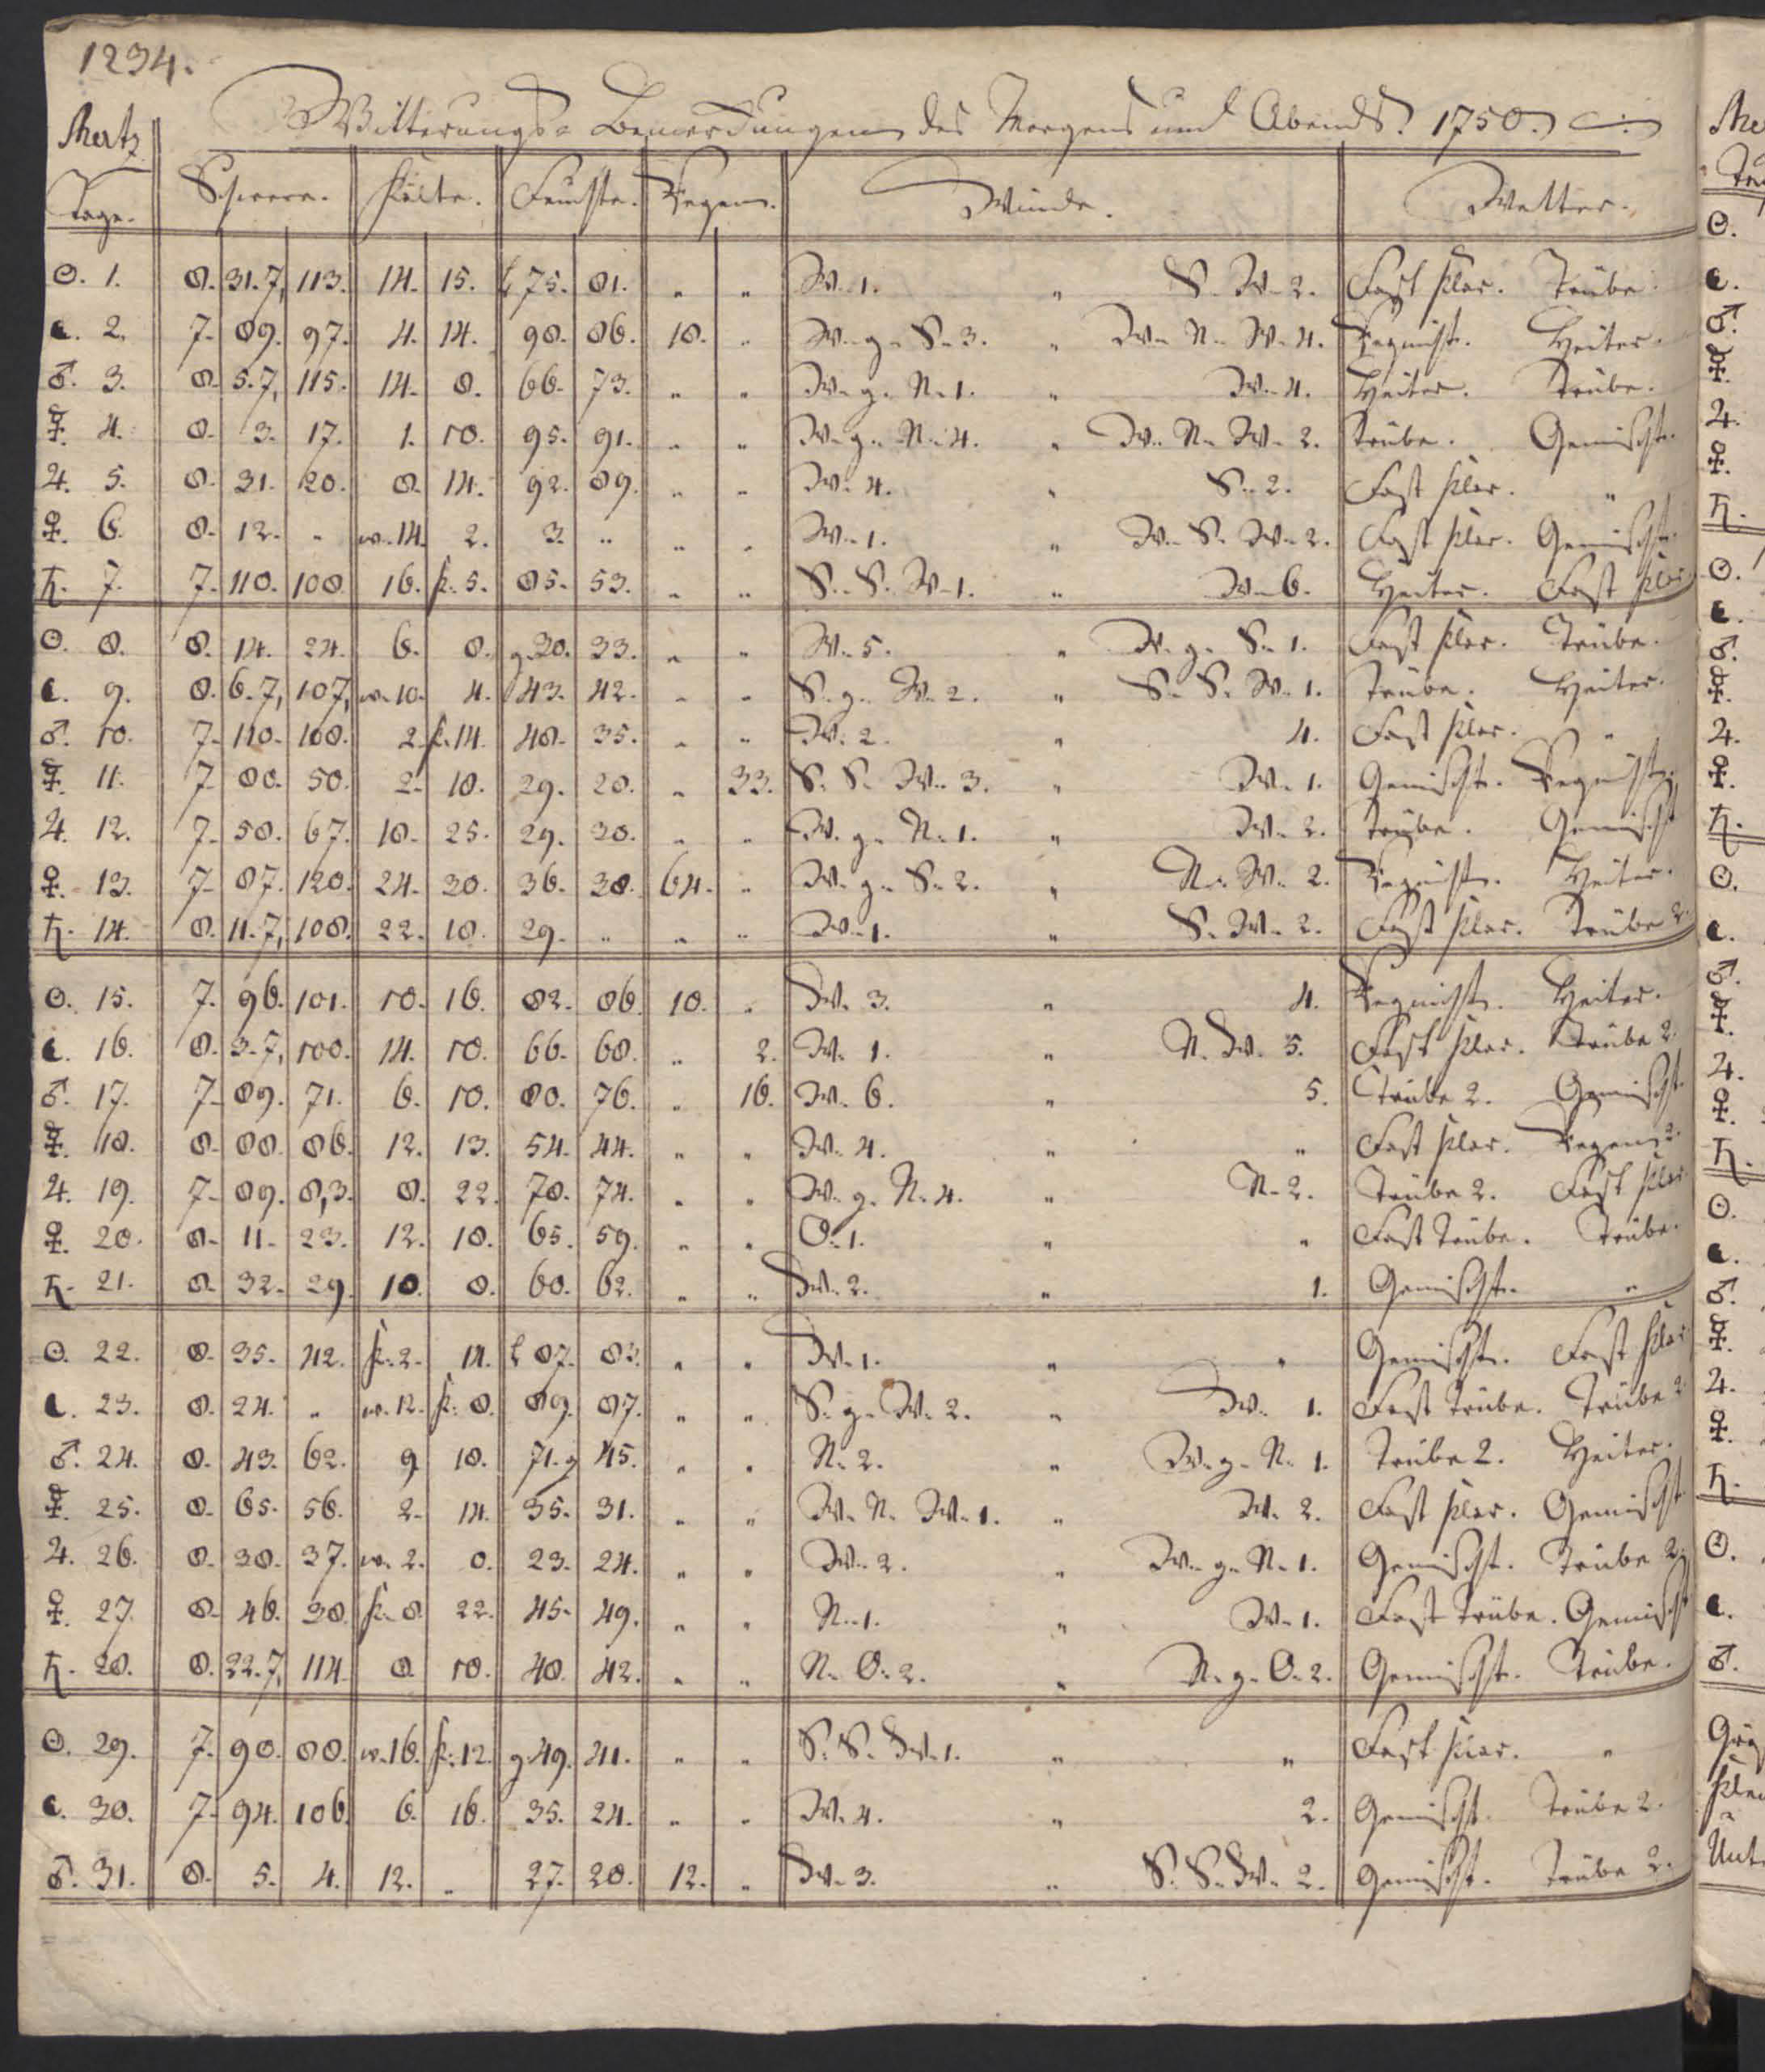 1234.
Witterungs-Bemerkungen des Morgens und Abends. 1750.
Mertz
Tage. Schwere. Kälte. Feuchte. Regen. Winde. Wetter.
☉. 1. 8. 31.7, 113. 14. 15. 75. 81. " " W. 1. " S. W. 2. Fast klar. Trübe.
☾. 2. 7. 89. 97. 4. 14. 98. 86. 18. " W. g. S. 3. " W. N. W. 4. Regnicht. Heiter.
♂. 3. 8. 5.7, 115. 14. 8. 66. 73. " " W. g. N. 1. " W. 4. Heiter. Trübe.
☿. 4. 8. 3. 17. 1. 10. 95. 91. " " W. g. N. 4. " W. N. W. 2. Trübe. Gemischt.
♃. 5. 8. 31. 20. 8. 14. 92. 89. " " W. 4. " S. 2. Fast klar. "
♀. 6. 8. 12. " w. 14. 2. 3. " " " W. 1. " W. S. W. 2. Fast klar. Gemischt.
♄. 7. 7. 110. 108. 16. k. 5. 85. 53. " " S. S. W. 1. " W. 6. Heiter. Fast klar
☉. 8. 8. 14. 24. 6. 8. g. 30. 33. " " W. 5. " W. g. S. 1. Fast klar. Trübe.
☾. 9. 8. 6.7, 107, w. 10. 4. 43. 42. " " S. g. W. 2. " S. S. W. 1. Trübe. Heiter.
♂. 10. 7. 110. 108. 2. k. 14. 48. 35. " " W. 2. " 4. Fast klar. "
☿. 11. 7. 80. 50. 2. 18. 29. 28. " 33. S. S. W. 3. " W. 1. Gemischt. Regnicht.
♃. 12. 7. 58. 67. 18. 25. 29. 30. " " W. g. N. 1. " W. 2. Trübe. Gemischt
♀. 13. 7. 87. 120. 24. 30. 36. 38. 64. " W. g. S. 2. " N. W. 2. Regnicht. Heiter.
♄. 14. 8. 11.7, 108. 22. 18. 29. " " " W. 1. " S. W. 2. Fast klar. Trübe 2.
☉. 15. 7. 96. 101. 10. 16. 82. 86. 18. " W. 3. " 4. Regnicht. Heiter.
☾. 16. 8. 3.7, 100. 14. 10. 66. 68. " 2. W. 1. " N. W. 5. Fast klar. Trübe 2.
♂. 17. 7. 89. 71. 6. 10. 80. 76. " 16. W. 6. " 5. Trübe 2. Gemischt
☿. 18. 8. 80. 86. 12. 13. 54. 44. " " W. 4. " " Fast klar. Regen 2.
♃. 19. 7. 89. 8,3. 8. 22. 78. 74. " " W. g. N. 4. " N. 2. Trübe 2. Fast klar
♀. 20. 8. 11. 23. 12. 18. 65. 59. " " O. 1. " " Fast Trübe. Trübe.
♄. 21. 8. 32. 29. 18. 8. 60. 62. " " W. 2. " 1. Gemischt. "
☉. 22. 8. 35. 42. k. 2. 14. 87. 83. " " W. 1. " " Gemischt. Fast klar
☾. 23. 8. 24. " w. 12. k. 8. 89. 87. " " S. g. W. 2. " W. 1. Fast Trübe. Trübe 2
♂. 24. 8. 43. 62. 9. 18. 71. g 45. " " N. 2. " W. g. N. 1. Trübe 2. Heiter.
☿. 25. 8. 65. 56. 2. 14. 35. 31. " " W. N. W. 1. " W. 2. Fast klar. Gemischt
♃. 26. 8. 38. 37. w. 2. 0. 23. 24. " " W. 2. " W. g. N. 1. Gemischt. Trübe 2.
♀. 27. 8. 46. 38. k. 8. 22. 45. 49. " " N. 1. " W. 1. Fast Trübe. Gemischt
♄. 28. 8. 22.7, 114. 8. 10. 48. 42. " " N. O. 2. " N. g. O. 2. Gemischt. Trübe.
☉. 29. 7. 90. 80. w. 16. k. 12. g. 49. 41. " " S. S. W. 1. " " Fast klar. "
☾. 30. 7. 94. 106. 6. 16. 35. 24. " " W. 4. " 2. Gemischt. Trübe 2.
♂. 31. 8. 5. 4. 12. " 27. 20. 12. " W. 3. " S. S. W. 2. Gemischt. Trübe 2.